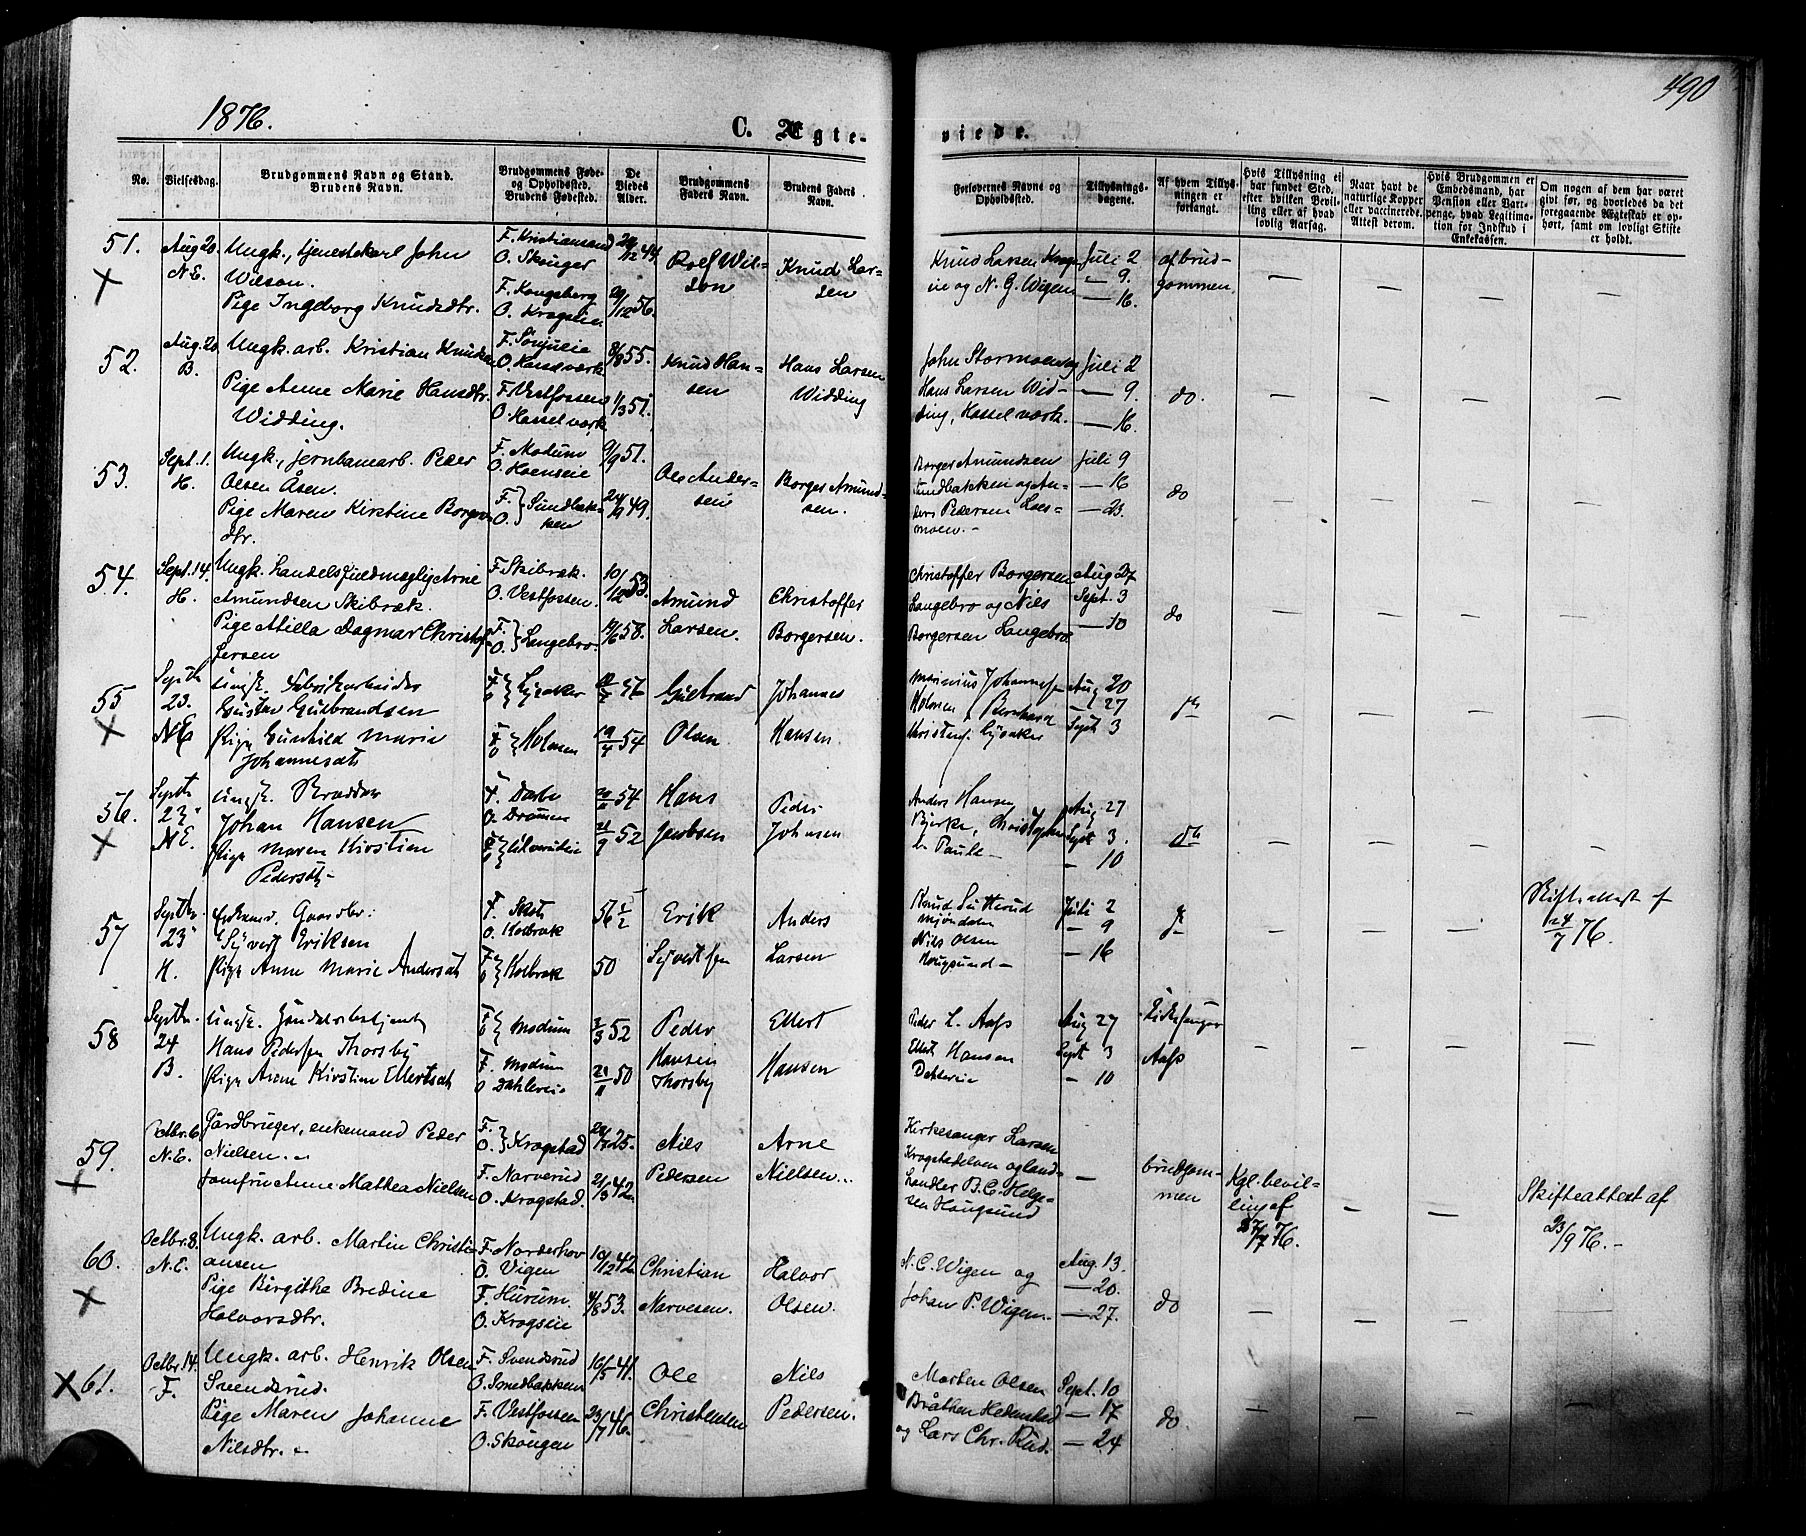 1876.
C. Ægte-
viede.
490
No.
Vielsesdag.
Brudgommens Navn og Stand.
Brudens Navn.
Brudgommens Føde-
og Opholdssted.
Brudens Fødested.
De
Viedes
Alder.
Brudgommens
Faders Navn.
Brudens Faders
Navn.
Forlovernes Navne og
Opholdssted.
Tillysnings-
dagene.
Af hvem Tillys-
ningen er
forlangt.
Hvis Tillysning ei
har fundet Sted,
efter hvilken Bevil-
ling eller af hvad
lovlig Aarsag.
Naar havt de
naturlige Kopper
eller vaccinerede.
Attest derom.
Hvis Brudgommen er
Embedsmand, har
Pension eller Vart-
penge, hvad Legitima-
tion for Indskud i
Enkekassen.
Om nogen af dem har været
givt før, og hvorledes da det
foregaaende Ægteskab er op-
hørt, samt om lovligt Skifte
er holdt.
51.
Aug 20
N.E.
Ungk., tjenestekarl John
Wilson.
Pige Ingeborg Knudsdtr.
F. Kristiansand
O. Skouger
F. Kongsberg
O. Krogseie
29/12 56.
Rolf Wil-
son
Knud Lar-
sen
Knud Larsen Krogs-
eie og N. G. Wigen
Juli 2
— 9.
— 16.
af brud-
gommen.
52.
Aug. 20
B.
Ungk. arb. Kristian Knudsen
Pige Anne Marie Hansdtr.
Widding.
O. Hassel værk
F. Vestfossen
O. Hassel værk
8/8 55.
11/3 51.
Knud Han-
sen
Hans Larsen
Widding
John Stormoen og
Hans Larsen Wid-
ding, Hassel værk.
Juli 2
— 9.
— 16.
do.
53.
Sept. 1.
H.
Ungk., jernbanearb. Peder
Olsen Åsen.
Pige Maren Kirstine Borgers-
dtr.
F. Modum
O. Hoenseie
F.
O. } Sundbak-
ken
9/9 51.
49.
Ole Ander-
sen
Borger Amund-
sen.
Borger Amundsen
Sundbakken og An-
ders Pedersen Loes-
moen.-
Juli 9
— 16
— 23.
do
54.
Sept. 14.
H.
Ungk. Handelsfuldmægtig Arne
Amundsen Skibræk.
Pige Atilla Dagmar Christof-
fersen
F. Skibræk.
O. Vestfossen.
F.
O. } Langebro.
10/12 53.
14/6 58.
Amund
Larsen.
Christoffer
Borgersen.
Christoffer Borgersen
Langebro og Nils
Borgersen Langebro
Aug 27
Sept. 3
— 10
do
55
Septb
23.
NE
Ungk. Fabrikarbeider
Gustav Gulbrandsen
Pige Gunhild Marie
Johannesdt
F
O } Lysaker
F
O } Holmen
47
19/4 54
Gulbrand
Olsen
Johannes
Hansen.
Marinius Johannesen
Holmen, Bernhard
Christens. Lysaker
Aug 20
— 27
Sept 3
do
56.
Septb
23
NE.
Ungk. Brødder
Johan Hansen
Pige Maren Kirstien
Pedersdt
O. Drammen
54
52
Hans
Jacobsen
Peder
Johnsen
Anders Hansen
Bjerke,
Aug 27
Sept 3.
— 10
do
57
Septb
23
H.
Enkemd. Gaardbr:
Syvert Eriksen
Pige Anne Marie Andersdt
O. Kolbræk
F
O } Kolbræk
56 1/2
50
Erik
Syvertsen
Anders
Larsen
Knud Sutterud
Mjøndalen
Nils Olsen
Hougsund
Juli 2
— 9
— 16
Skifteattest af
24/7 76.
58
Septb
24
B.
Ungk. Handelsbetjent
Hans Pedersen Thorsby
Pige Anne Kirstien Ellertsdt
F
O } Modum
F. Modum
52
50
Peder
Hansen
Thorsby
Ellert
Hansen
Peder L. Aass
Ellert Hansen
Aug 27
Sept 3
— 10
Kirkesanger
Aass
59.
Octbr. 6
N.E.
Gårdbruger, enkemand Peder
Nielsen.
Jomfru Anne Mathea Nielsen
F.
O. } Krogstad
F. Narverud
O. Krogstad.
25.
21/3 42.
Nils
Pedersen
Arne
Nielsen
Kirkesanger Larsen
Krogstadelven og land-
handler B. C. Helge-
sen Hougsund
—
brudgom-
men
Kgl. bevil-
ling af
27/7 76.
Skifteattest af
23/9 76.-
60.
Octbr. 8.
N.E.
Ungk. arb. Martin Christi-
ansen
Pige Birgithe Bredine
Halvorsdtr.
F. Norderhov
O. Vigen
F. Hurum.
O. Krogseie
10/12 42.
4/8 53.
Christian
Narvesen.
Halvor
Olsen.
N. C. Wigen og
Johan P. Wigen.
Aug. 13.
— 20.
— 27.
do
61.
Octbr. 14.
F.
Ungk. arb. Henrik Olsen
Svendsrud.
Pige Maren Johanne
Nilsdtr.
F. Svendsrud
O. Smedbakken
F. Vestfossen
O. Skougen
16/5 41.
23/7 46.
Ole
Christensen
Nils
Pedersen.
Morten Olsen
Bråthen Hedenstad
og Lars Chr. Ruud.
Sept. 10
— 17
— 24
do.